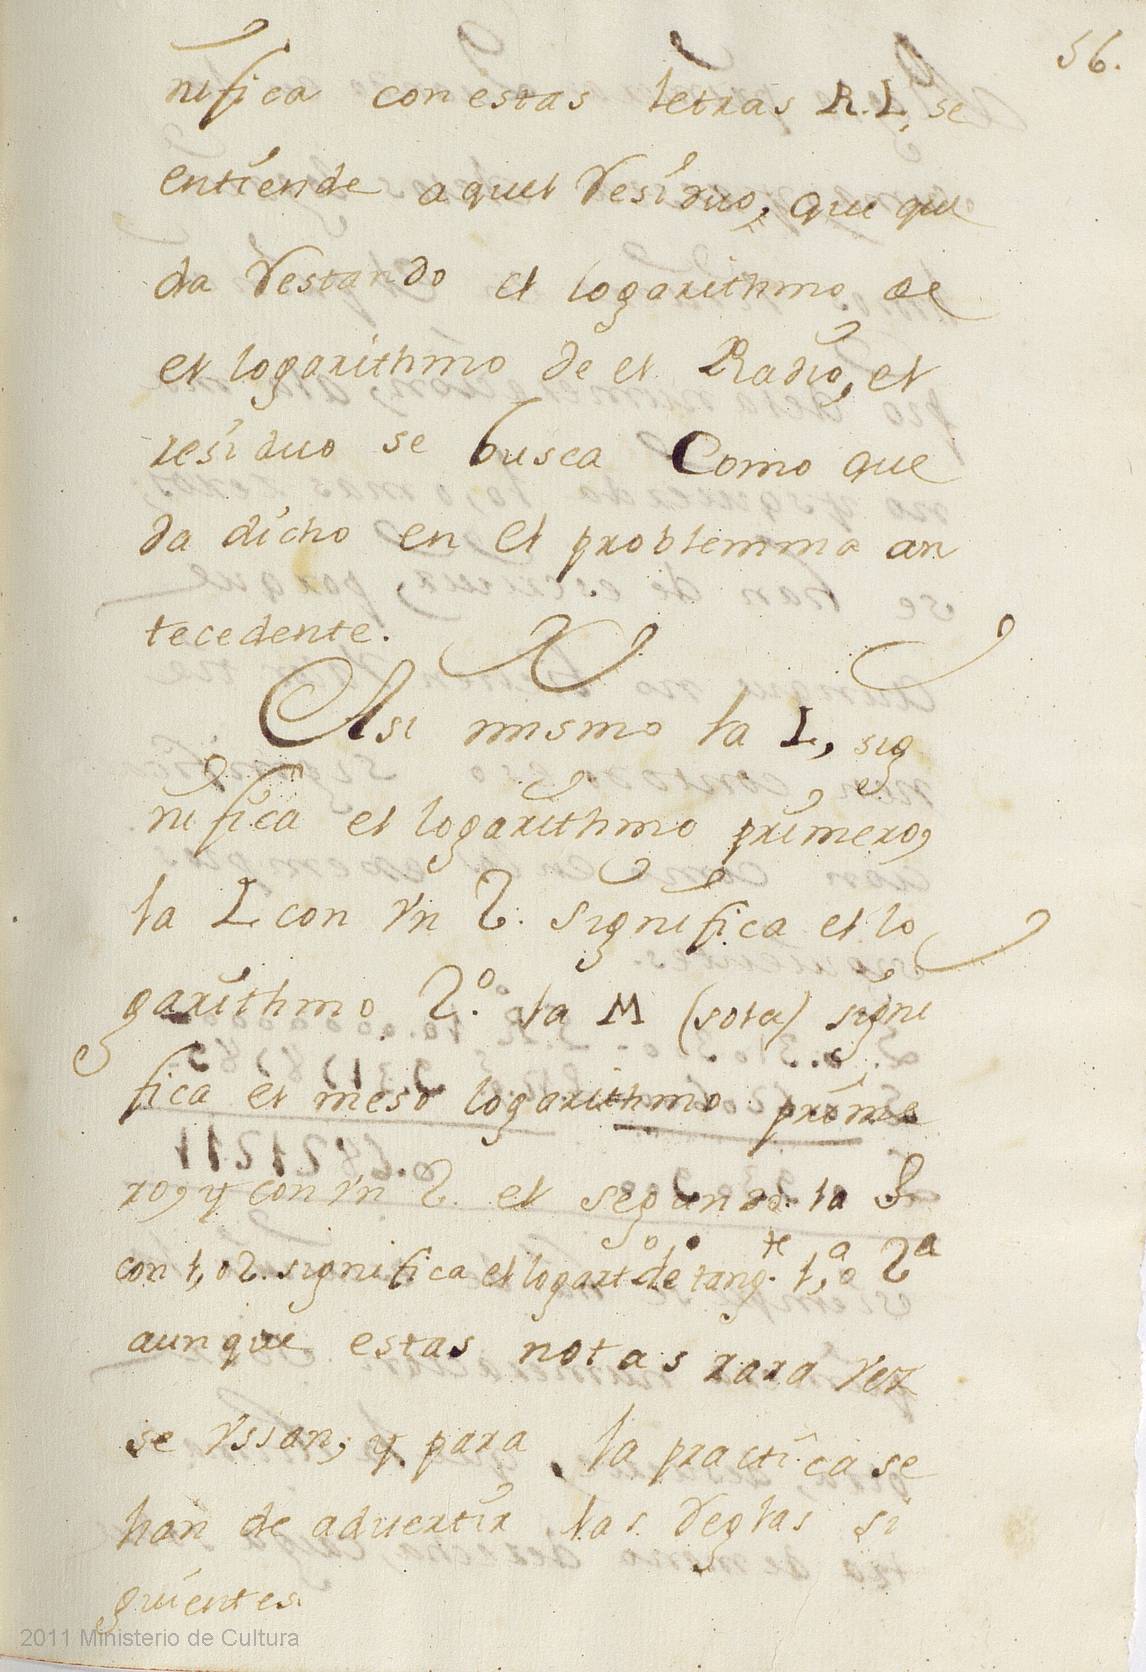 56.
nifica con estas letras R.L, se
entiende aquel residuo, que que
da restando el logarithmo de
el logarithmo de el Radio, el
residuo se busca Como que
da dicho en el problemma an
tecedente.
Asi mismo la L, sig
nifica el logarithmo primero,
la L con vn 2. significa el lo
garithmo 2.º la M (sola) signi
fica el meso logarithmo prime
ro, y con vn 2. el segundo. la
con 1, o 2. significa el logart.º de tang.te 1,ª o 2ª
aunque estas notas rara vez
se vssan; y para la practica se
han de aduertir las reglas si
guientes.
2011 Ministerio de Cultura